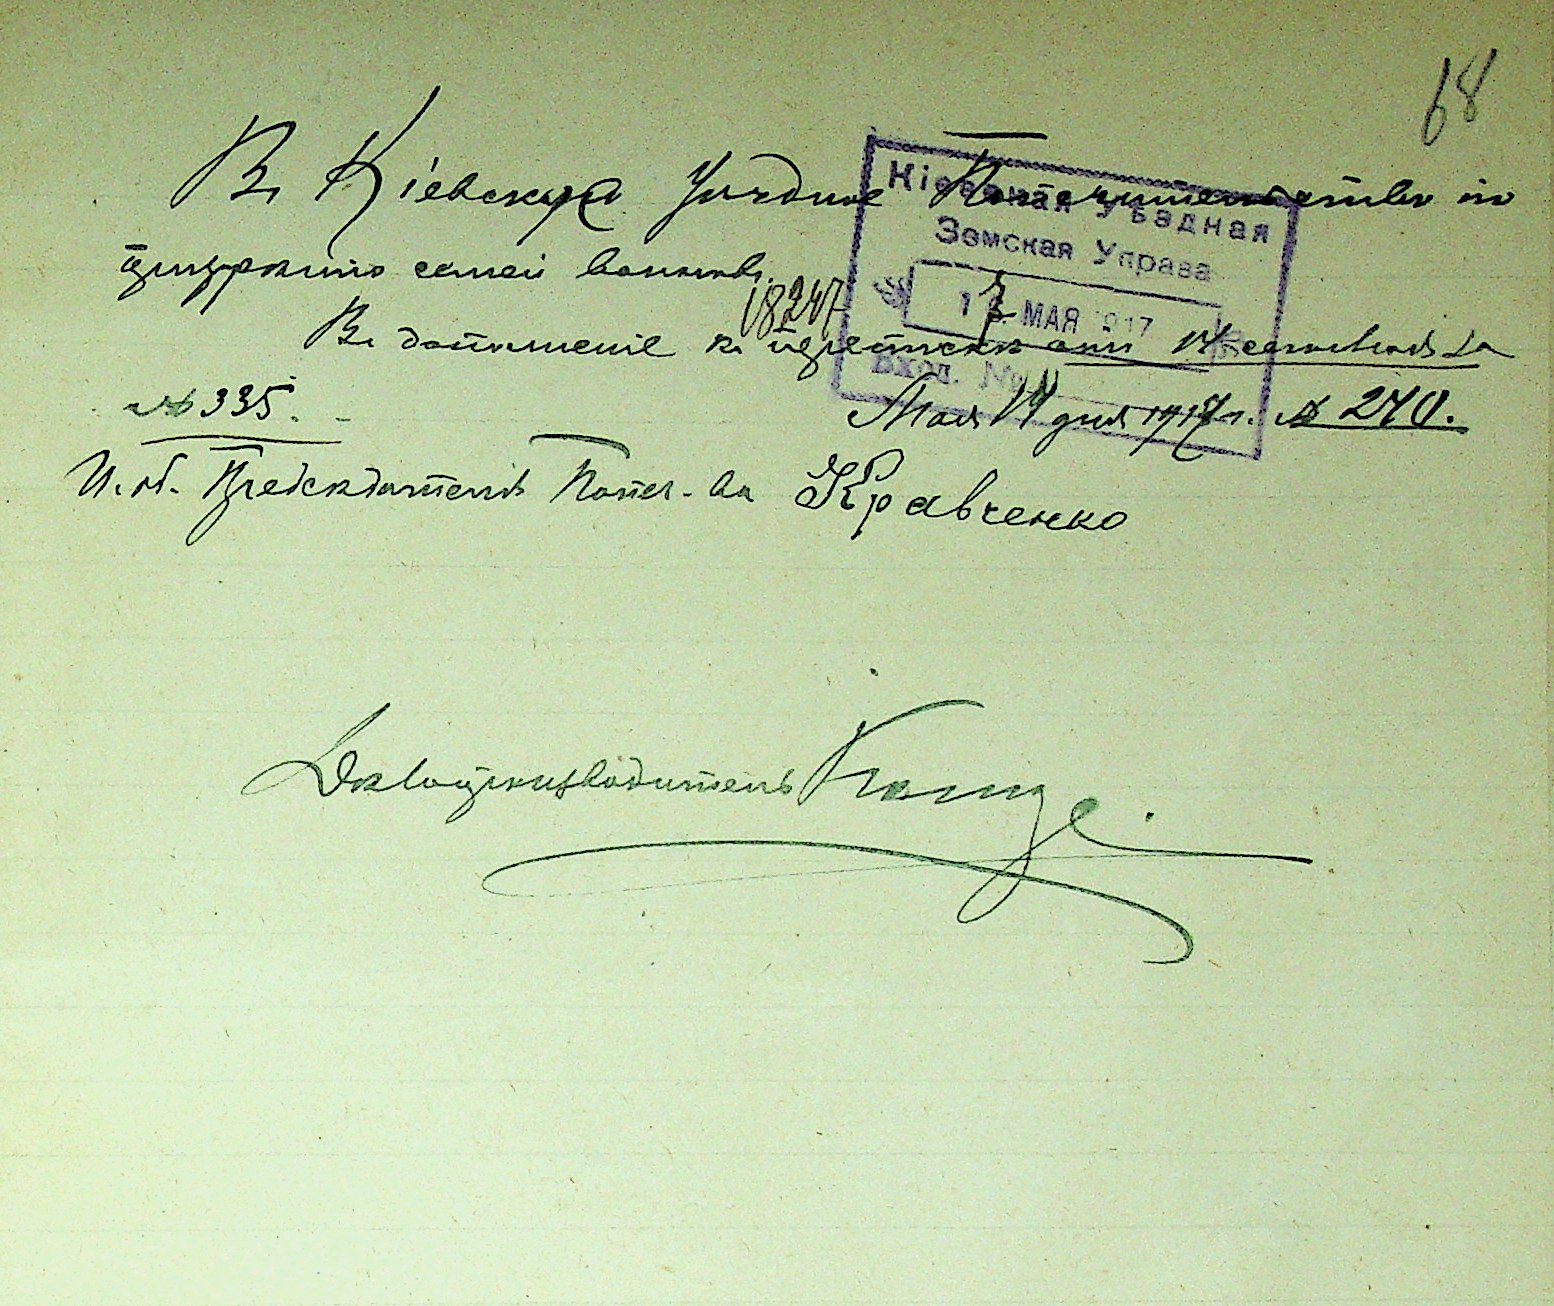 68
Въ Кіевское Уѣздное Попечительство по
призрѣнію семей воиновъ.
Кіевская Уѣздная
Земская Управа
МАЯ 1917
Вход. №
18247
Въ дополненіе къ перепискѣ отъ 14 за
№ 335.
Мая 14 дня 1917 г. № 240.
И. об. Предсѣдателя Попеч-ва Кравченко
Дѣлопроизводитель